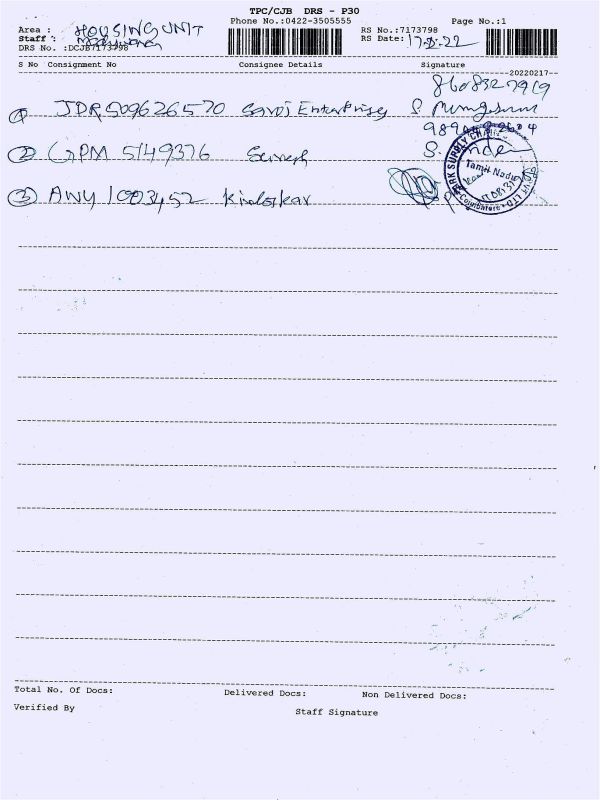 TPC/CJB DRS - P30
Phone No.:0422-3505555 Page No.:1
Area : HOUSING UNIT RS No.:7173798
Staff : RS Date: 17-2-22
DRS No. :DCJB7173798
S No Consignment No Consignee Details Signature
20220217
8608327919
1 JDR509626570 Savoi Enterprises S.
2 GPM 5149376 Suresh S.
SUPPLY CHAIN
Tamil Nadu
PVT LTD
Coimbatore
3 AWY 1003452 Kirloskar
Total No. Of Docs: Delivered Docs: Non Delivered Docs:
Verified By Staff Signature